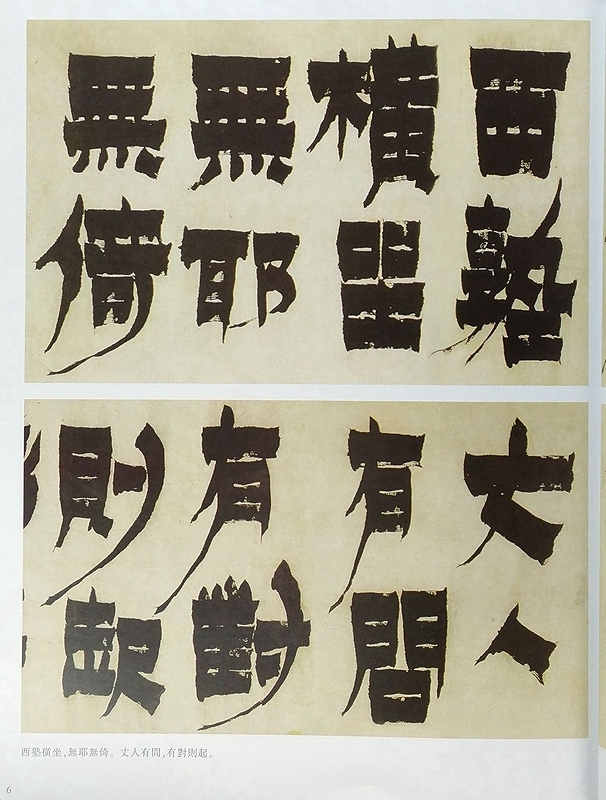 西塾
橫坐
無耶
無倚
丈人
有問
有對
則起
西塾橫坐,無耶無倚。丈人有問,有對則起。
6